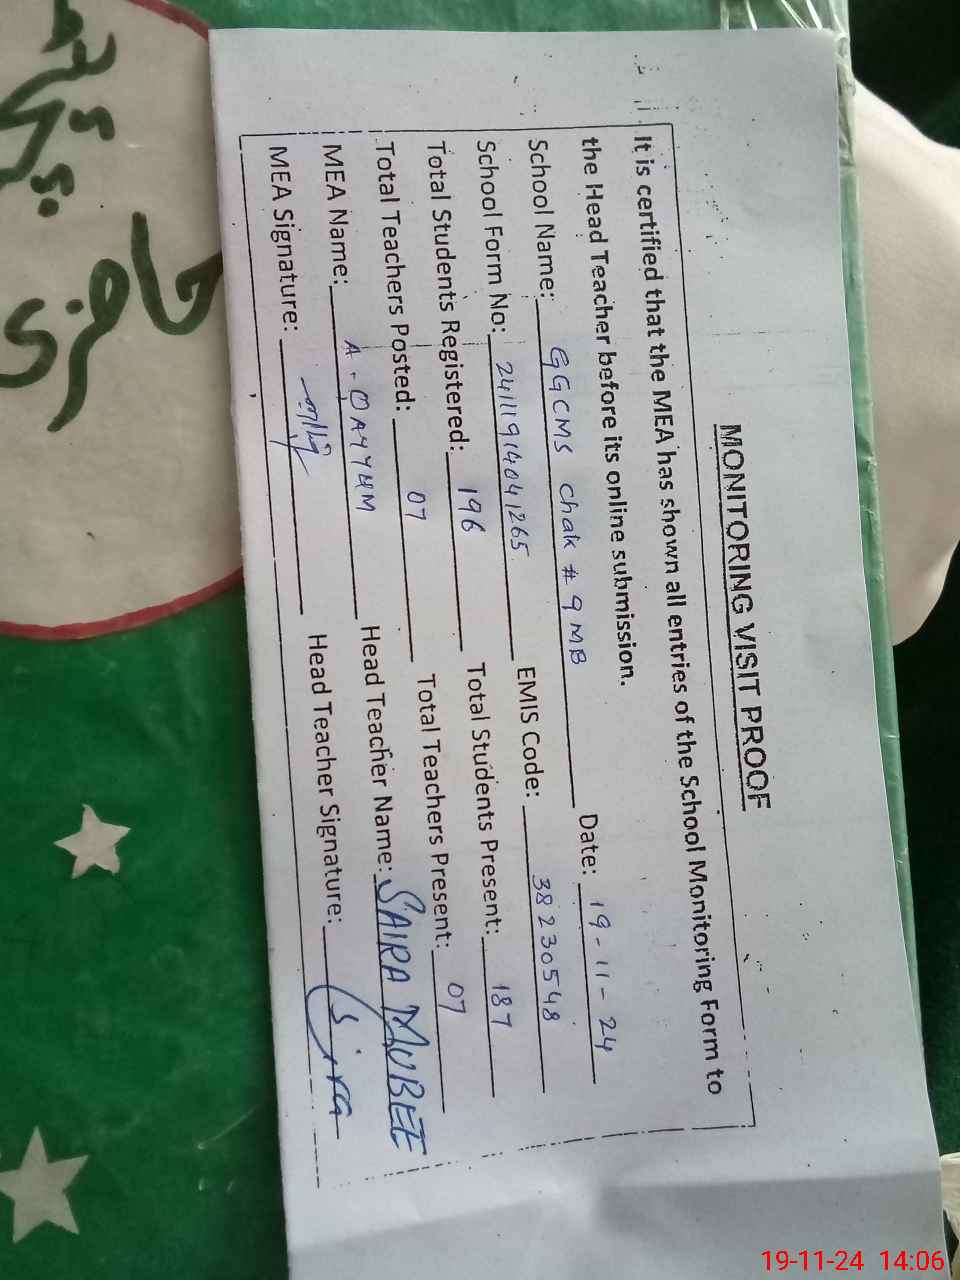 MONITORING VISIT PROOF
It is certified that the MEA has shown all entries of the School Monitoring Form to
the Head Teacher before its online submission.
School Name: GGCMS Chak # 9 MB Date: 19-11-24
School Form No: 24111914041265 EMIS Code: 38230548
Total Students Registered: 196 Total Students Present: 187
Total Teachers Posted: 07 Total Teachers Present: 07
MEA Name: A. QAYYUM Head Teacher Name: SAIRA MUBEE
MEA Signature: Head Teacher Signature:
حاضری
19-11-24 14:06